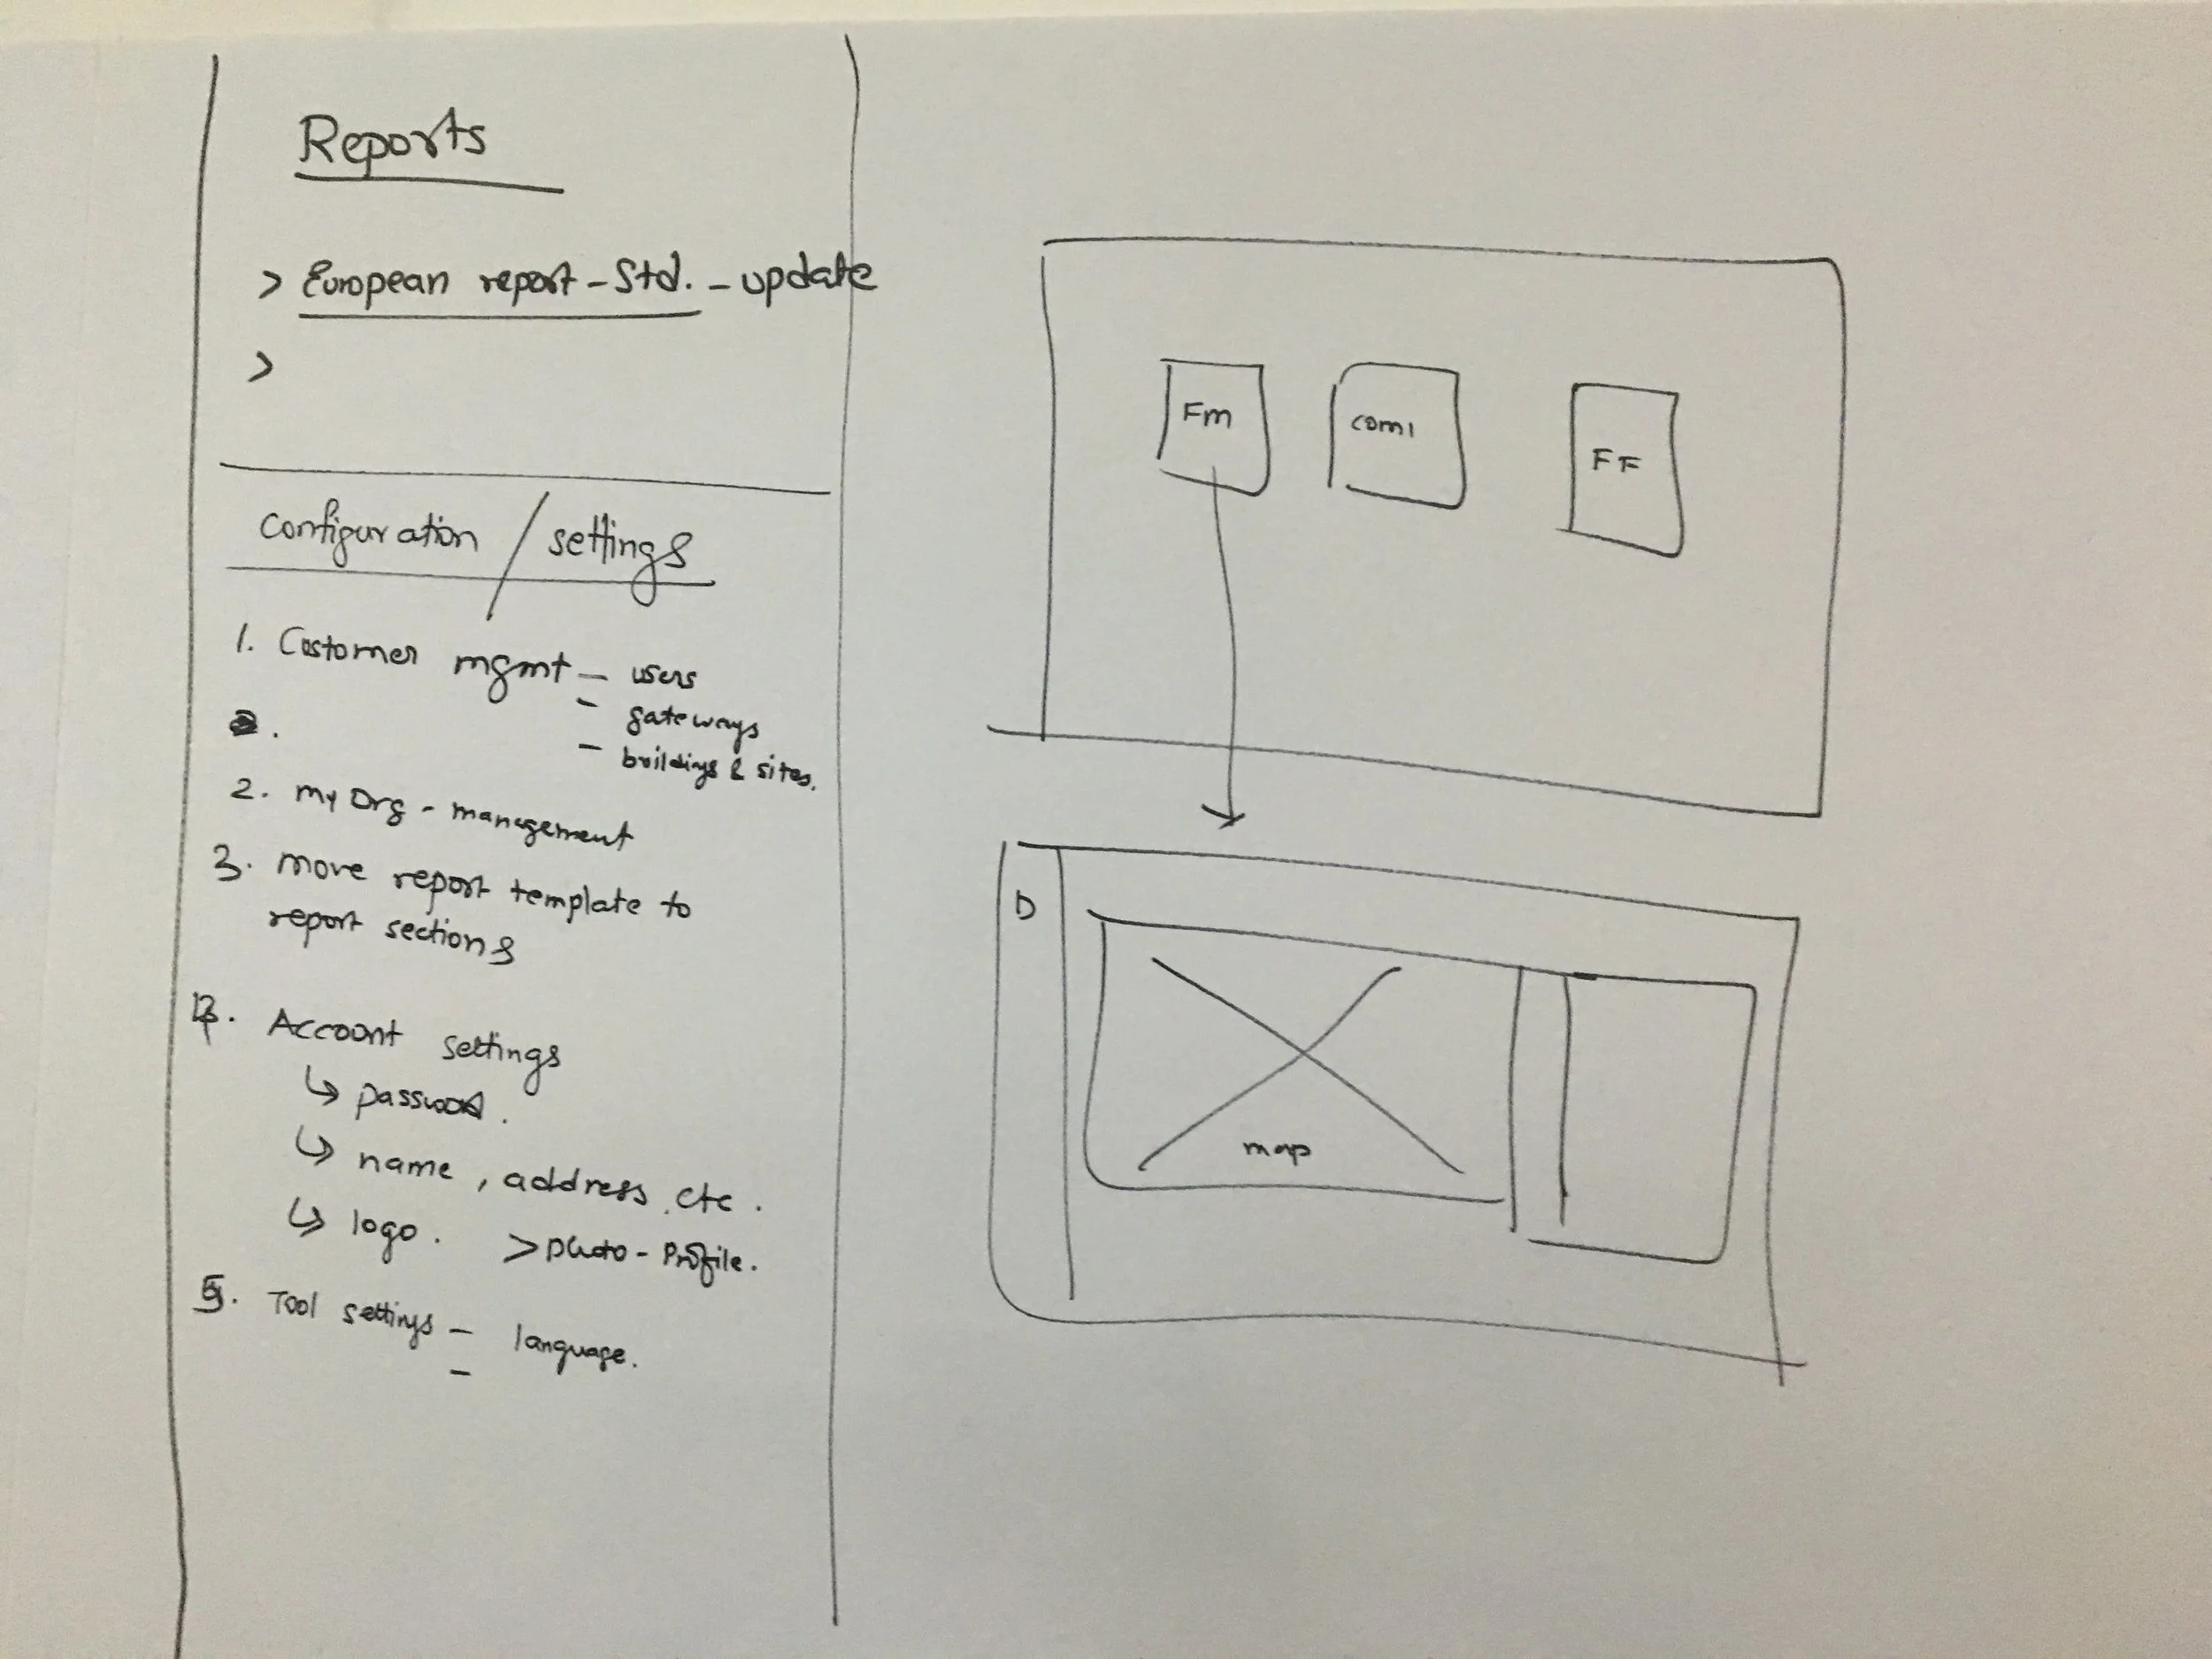 Reports
> European report - Std. - update
>
configuration / settings
1. Customer mgmt - users
- gateways
- buildings & sites.
2. my Org - management
3. move report template to
report sections
4. Account settings
↳ password.
↳ name, address etc.
↳ logo. > photo - Profile.
5. Tool settings - language.
-
Fm
com1
FF
D
map